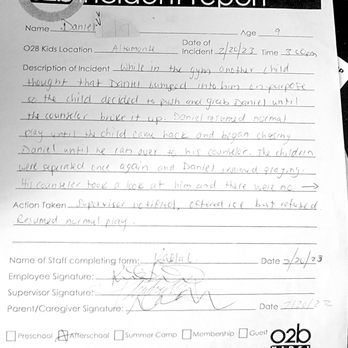 o2b incident report
Name Daniel Age 9
O2B Kids Location Altamonte Date of Incident 2/20/23 Time 3:00pm
Description of Incident While in the gym another child
thought that Daniel bumped into him on purpose
so the child decided to push and grab Daniel until
the counselor broke it up. Daniel resumed normal
play until the child came back and began chasing
Daniel until he ran over to his counselor. The children
were separated once again and Daniel resumed playing.
His counselor took a look at him and there were no →
Action Taken Supervisor notified, offered ice but refused
Resumed normal play.
Name of Staff completing form: Date 2/20/23
Employee Signature:
Supervisor Signature:
Parent/Caregiver Signature: Date 2/20/23
Preschool Afterschool Summer Camp Membership Guest o2b
KIDS